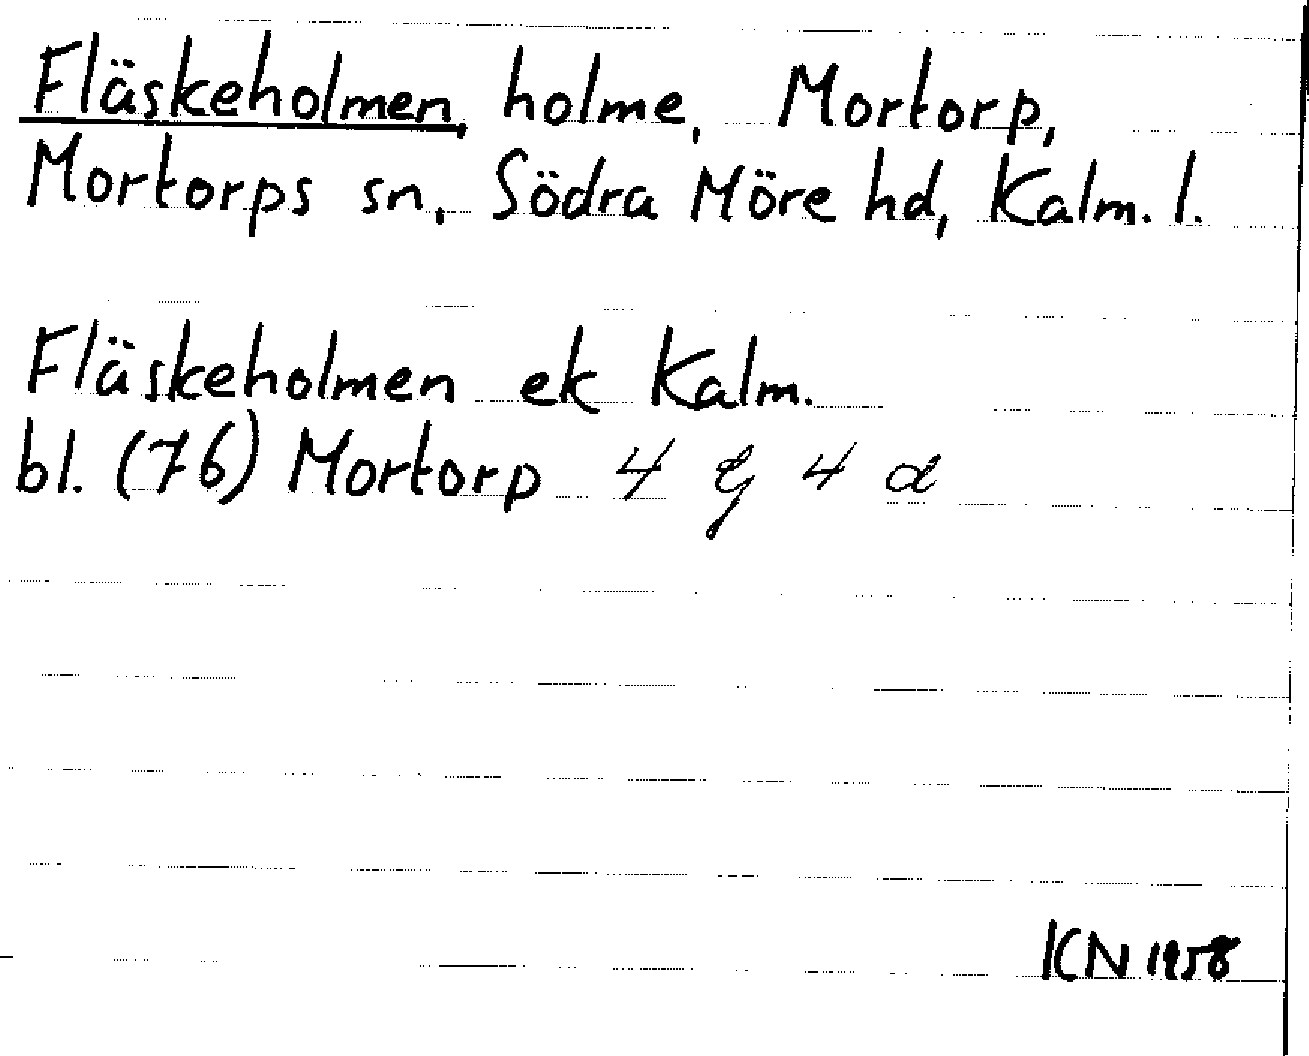 Fläskeholmen, holme, Mortorp,
Mortorps sn, Södra Möre hd, Kalm. l.
Fläskeholmen ek Kalm.
bl. (76) Mortorp 4 g 4 d
KN 1958